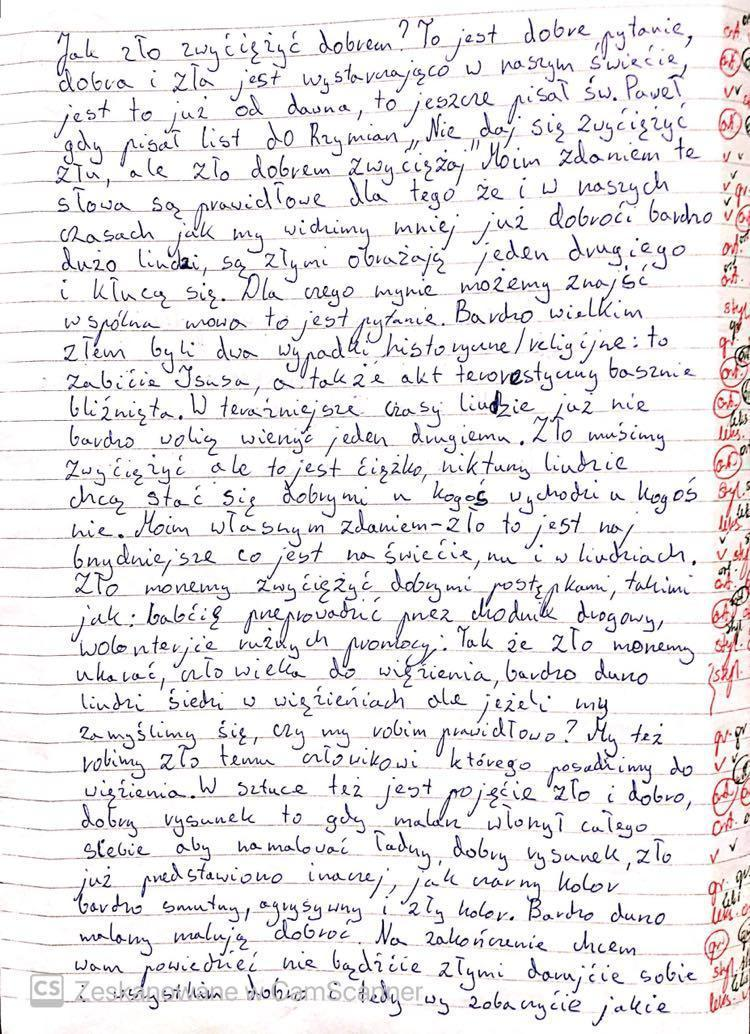 Jak zło zwyćiężyć dobrem? To jest dobre pytanie,
dobra i zła jest wystarczająco w naszym świećie,
jest to już od dawna, to jeszcze pisał św. Paweł
gdy pisał list do Rzymian „Nie daj się zwyćiężyć
złu, ale zło dobrem zwyćiężaj" Moim zdaniem te
słowa są prawidłowe dla tego że i w naszych
czasach jak my widzimy mniej już dobroći bardzo
dużo liudzi, są złymi obrażają jeden drugiego
i kłucą się. Dla czego my nie możemy znajść
wspólna mowa to jest pytanie. Bardzo wielkim
złem byli dwa wypadki historyczne/religijne: to
zabićie Isusa, a także akt terorestyczny basznie
bliźnięta. W teraźniejsze czasy liudzie już nie
bardzo volią wierzyć jeden drugiemu. Zło muśimy
zwyćiężyć ale to jest ćiężko, niktury liudzie
chcą stać się dobrymi u kogoś wychodzi u kogoś
nie. Moim własnym zdaniem-zło to jest naj
brydniejsze co jest na świećie, nu i w liudziach.
Zło możemy zwyćiężyć dobrymi postępkami, takimi
jak: babćię przeprovadzić przez chodnik drogowy,
wolonterjie rużnych promocy. Tak że zło możemy
ukarać, człowieka do więźienia, bardzo dużo
liudzi śiedzi w więźieniach ale jeżeli my
zamyślimy się, czy my robim prawidłowo? My też
robimy zło temu człowikowi którego posadzimy do
więźienia. W sztuce też jest pojęćie zło i dobro,
dobry rysunek to gdy malarz włożył całego
siebie aby namalować ładny, dobry rysunek, zło
już przedstawiono inaczej, jak czarny kolor
bardzo smutny, agrysywny i zły kolor. Bardzo dużo
malarzy malują dobroć. Na zakończenie chcem
wam powiedzieć nie bądźćie złymi darujćie sobie
i wszystkim dobro i wy zobaczyćie jakie
ort.
gr.
styl.
leks.
CS Zeskanowane w CamScanner